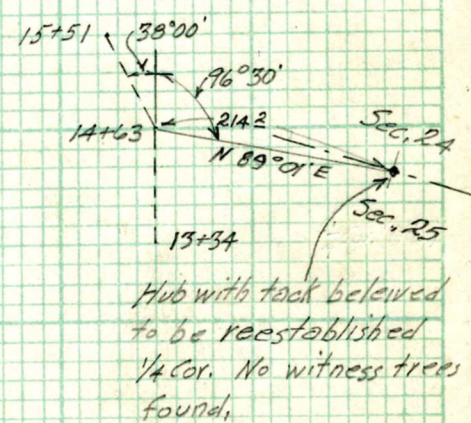 15+51
38°00'
96°30'
14+63
214 2
N 89°01' E
Sec. 24
Sec. 25
13+34
Hub with tack beleived
to be reestablished
1/4 Cor. No witness trees
found.